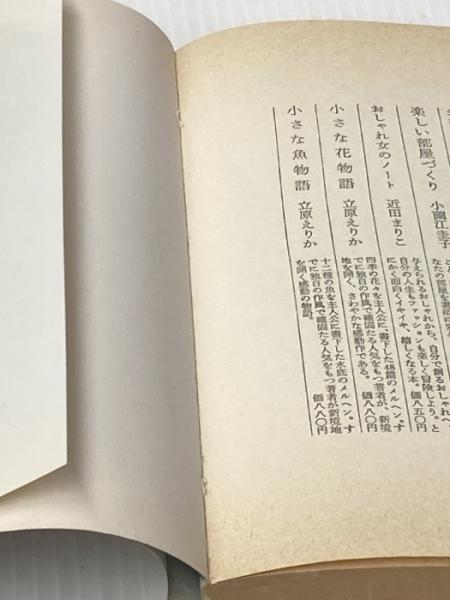 楽しい部屋づくり 小園江圭子
おしゃれ女のノート 近田まりこ
与えられるおしゃれから、自分で創るおしゃれへ
自分の人生もファッションも楽しく冒険しよう。と
にかく面白くイキイキ、嬉しくなる本。 価八五〇円
小さな花物語 立原えりか
四季の花々を主人公に、書下した48篇のメルヘン。す
でに独自の作風で確固たる人気をもつ著者が、新境
地を開く、さわやかな感動作である。 価八八〇円
小さな魚物語 立原えりか
十二種の魚を主人公に書下した水底のメルヘン。す
でに独自の作風で確固たる人気をもつ著者が新境地
を開く感動の物語。 価八八〇円